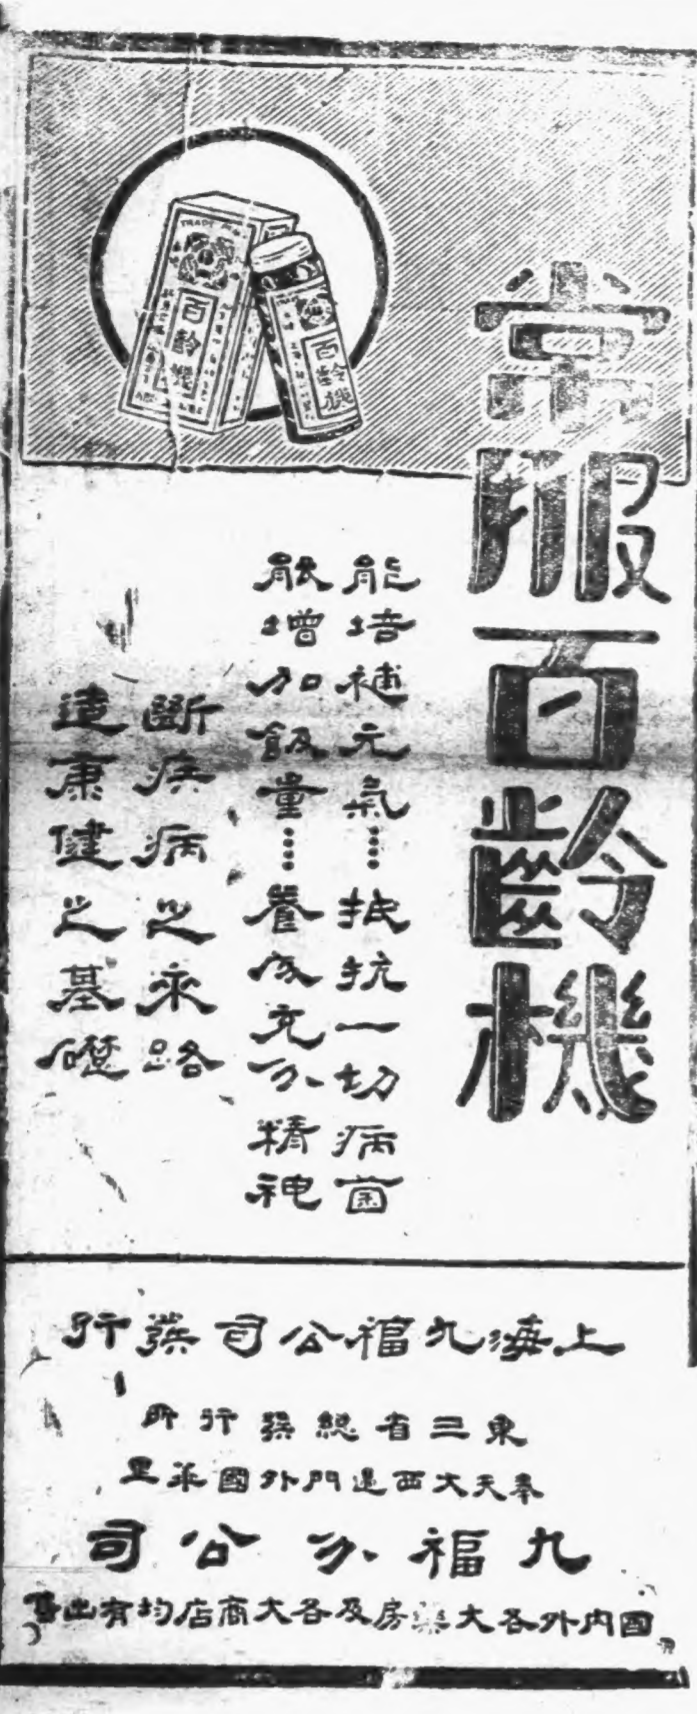 常服百齡機
能培補元氣⋮抵抗一切病菌
能增加飯量⋮養成充分精神
斷疾病之來路
造康健之基礎
TRADE
百齡機
百齡機
上海九福公司發行
東三省總發行所
奉天大西邊門外國平里
九福分公司
國內外各大藥房及各大商店均有出售